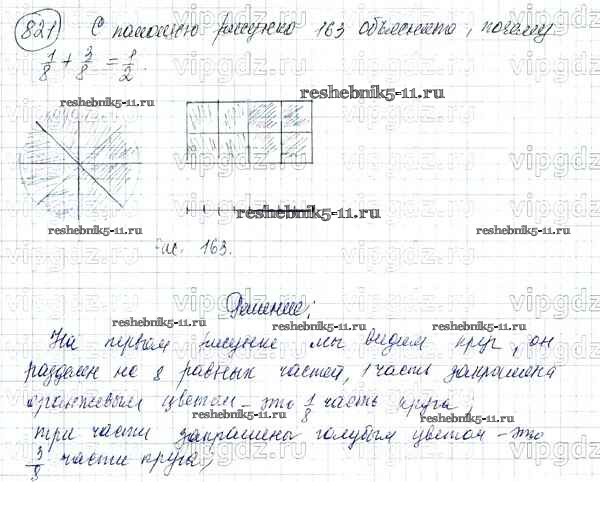 821 С помощью рисунка 163 объясните, почему
1/8 + 3/8 = 1/2.
reshebnik5-11.ru
reshebnik5-11.ru
reshebnik5-11.ru
reshebnik5-11.ru
Рис. 163.
Решение:
reshebnik5-11.ru
reshebnik5-11.ru
На первом рисунке мы видим круг, он
разделен на 8 равных частей, 1 часть закрашена
оранжевым цветом – это 1/8 часть круга,
reshebnik5-11.ru
reshebnik5-11.ru
три части закрашены голубым цветом – это
3/8 части круга,
vipgdz.com